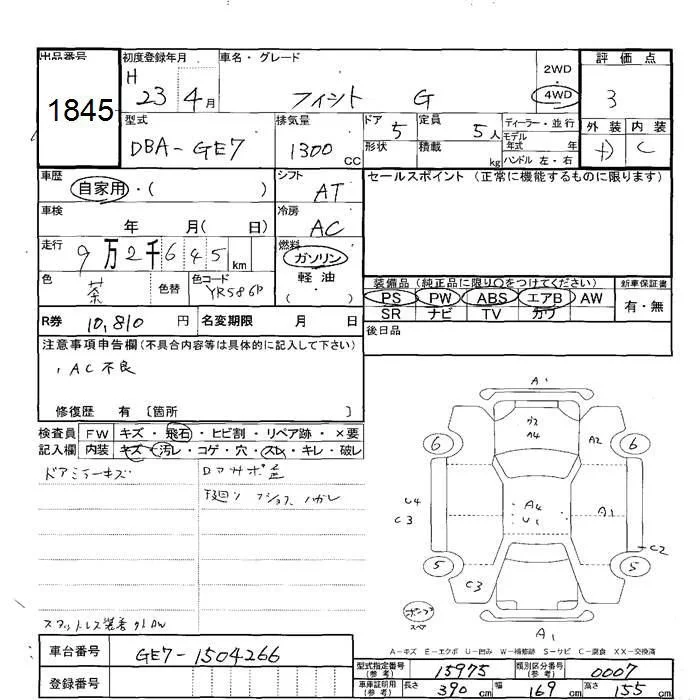 出品番号 初度登録年月 車名・グレード 2WD 評価点
1845 H 23 4月 フィット G 4WD 3
型式 排気量 ドア 定員 ディーラー・並行 外装 内装
DBA-GE7 1300CC 5 5人 モデル年式 年 C
形状 積載 kg ハンドル 左・右
車歴 シフト セールスポイント (正常に機能するものに限ります)
自家用・( ) AT
車検 冷房
年 月( 日) AC
走行 燃料
9万2千645km ガソリン
色 色替 色コード 軽油
茶 YR586P ( )
装備品 (純正品に限り○をつけてください) 新車保証書
PS PW ABS エアB AW 有・無
SR ナビ TV カワ
R券 10,810円 名変期限 月 日 後日品
注意事項申告欄(不具合内容等は具体的に記入して下さい)
AC不良
修復歴 有 〔箇所 〕
検査員 FW キズ・飛石・ヒビ割・リペア跡・×要
記入欄 内装 キズ・汚レ・コゲ・穴・スレ・キレ・破レ
ドアミラーキズ
A1
A4
A2
6 6
U4
C3
A4
U1
A1
C2
5 5
C3
A1
A-キズ E-エクボ U-凹み W-補修跡 S-サビ C-腐食 XX-交換済
車台番号 GE7-1504266
登録番号
型式指定番号(参考) 15975 類別区分番号(参考) 0007
車庫証明用(参考) 長さ 390cm 幅 169cm 高さ 155cm